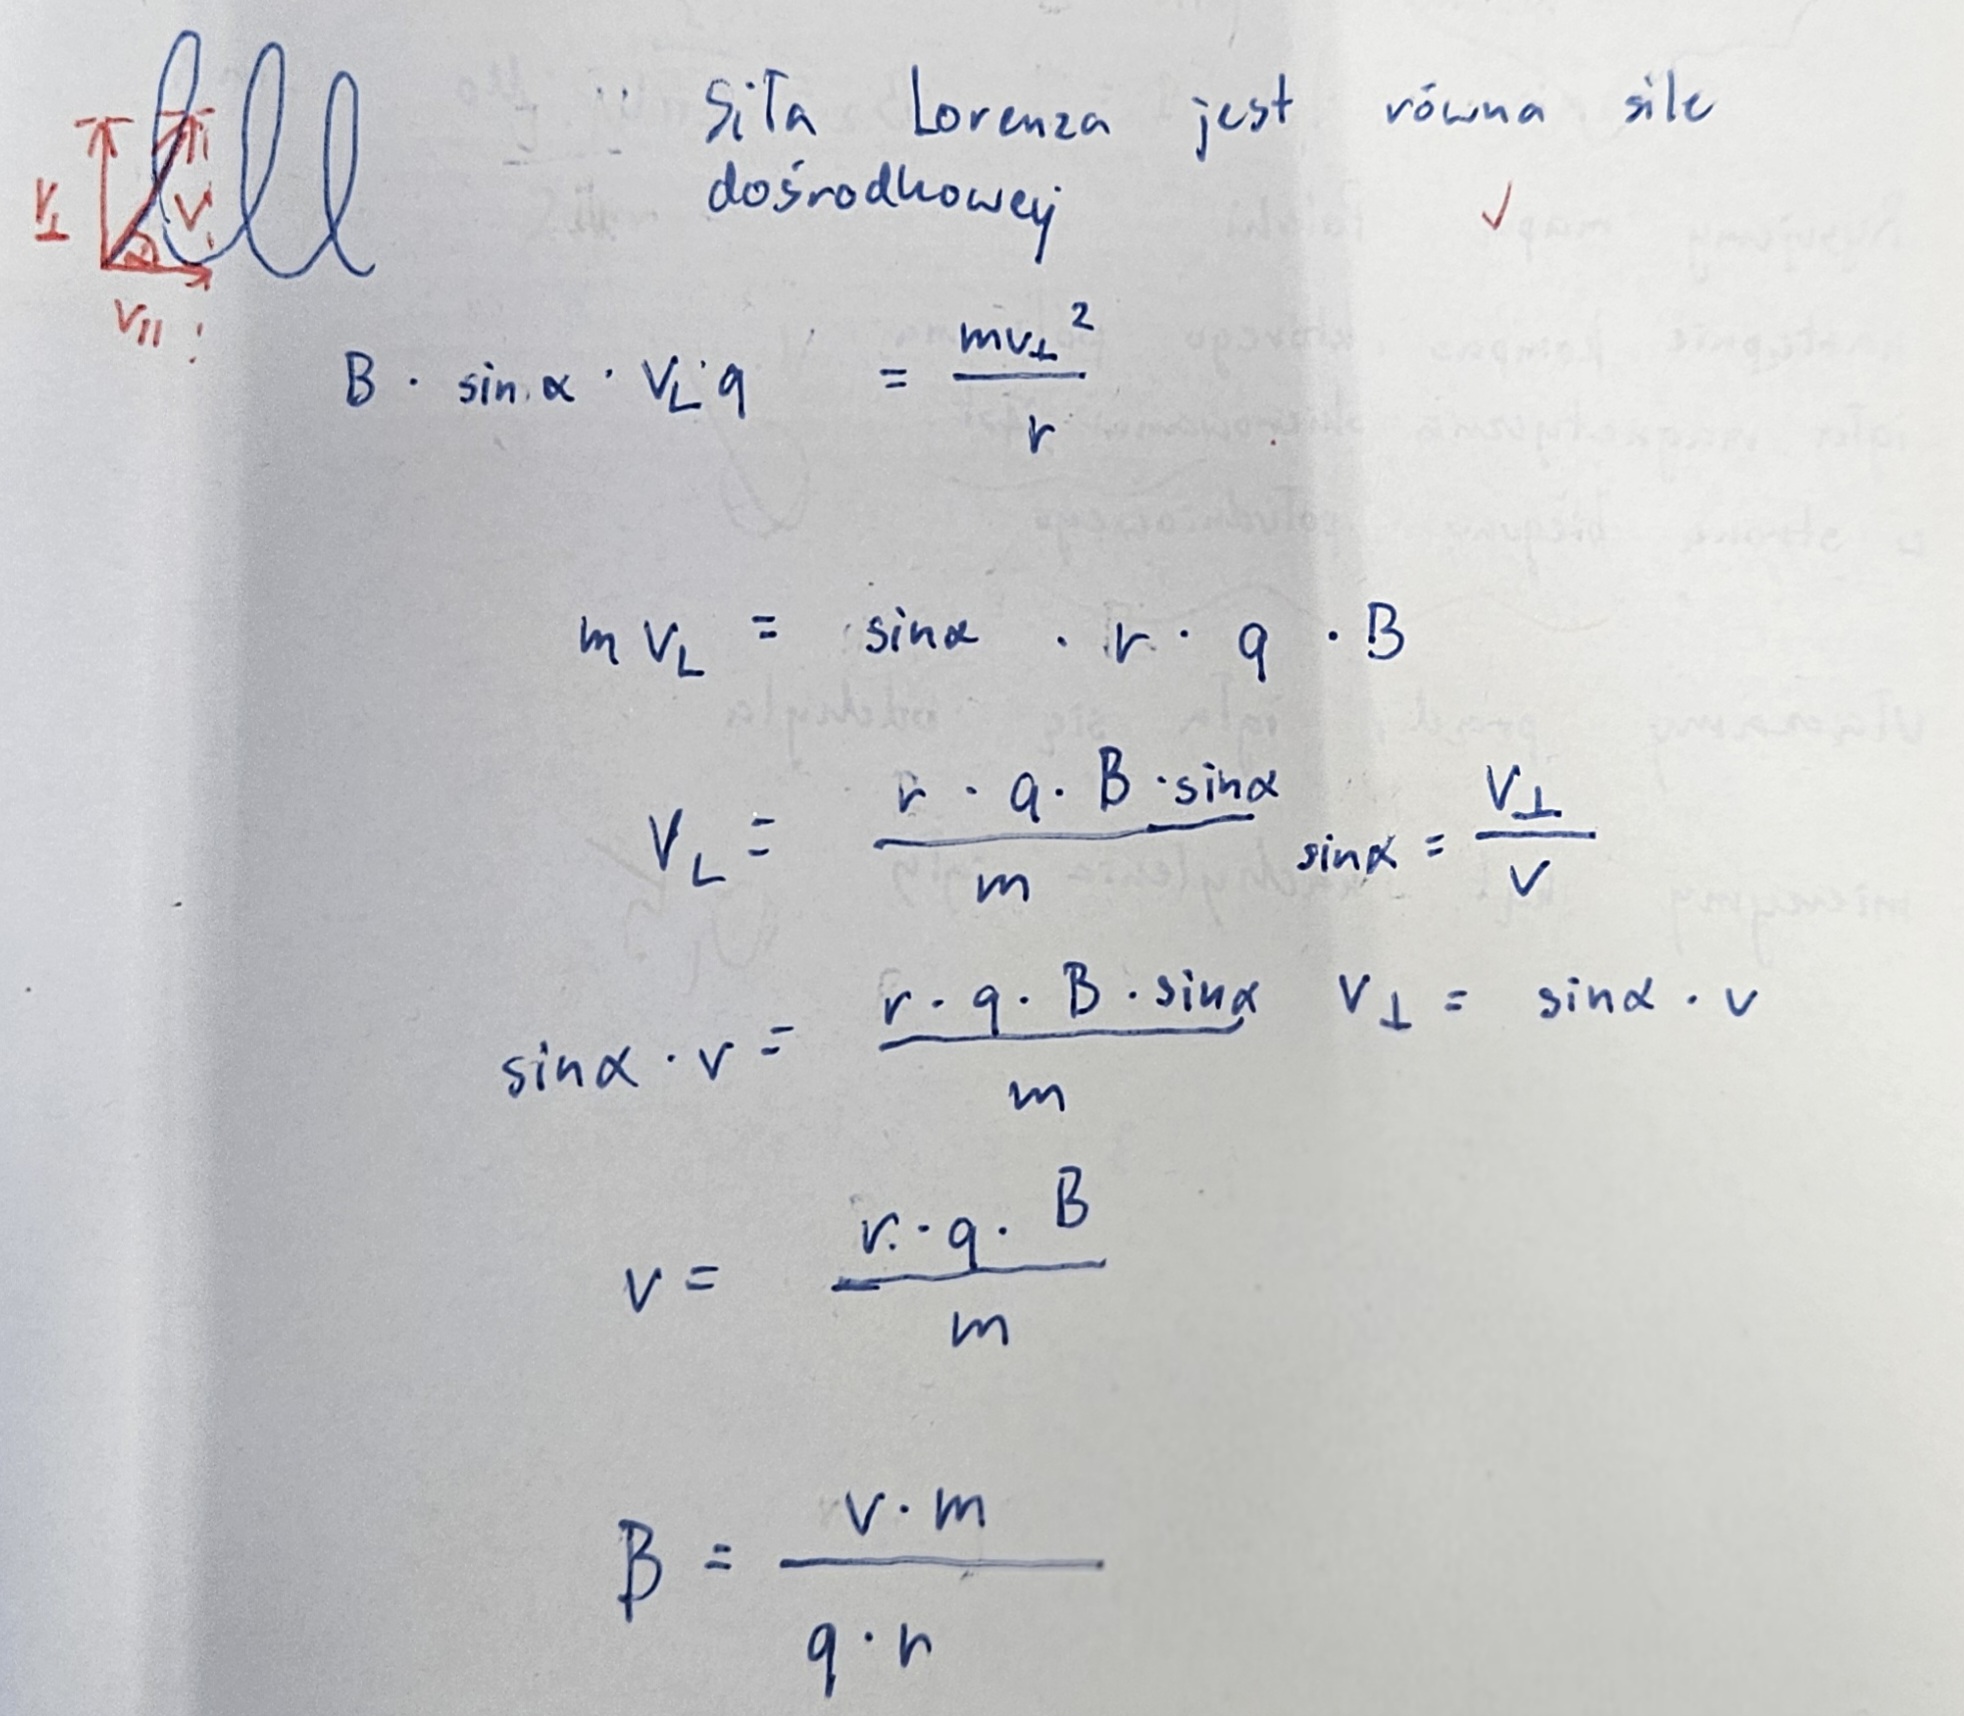 Siła Lorenza jest równa sile
dośrodkowej
V⊥
V
α
V|| :
B · sin α · V⊥ · q = mv⊥² / r
m V⊥ = sin α · r · q · B
V⊥ = r · q · B · sin α / m
sin α = V⊥ / V
sin α · v = r · q · B · sin α / m
V⊥ = sin α · v
v = r · q · B / m
B = v · m / q · r